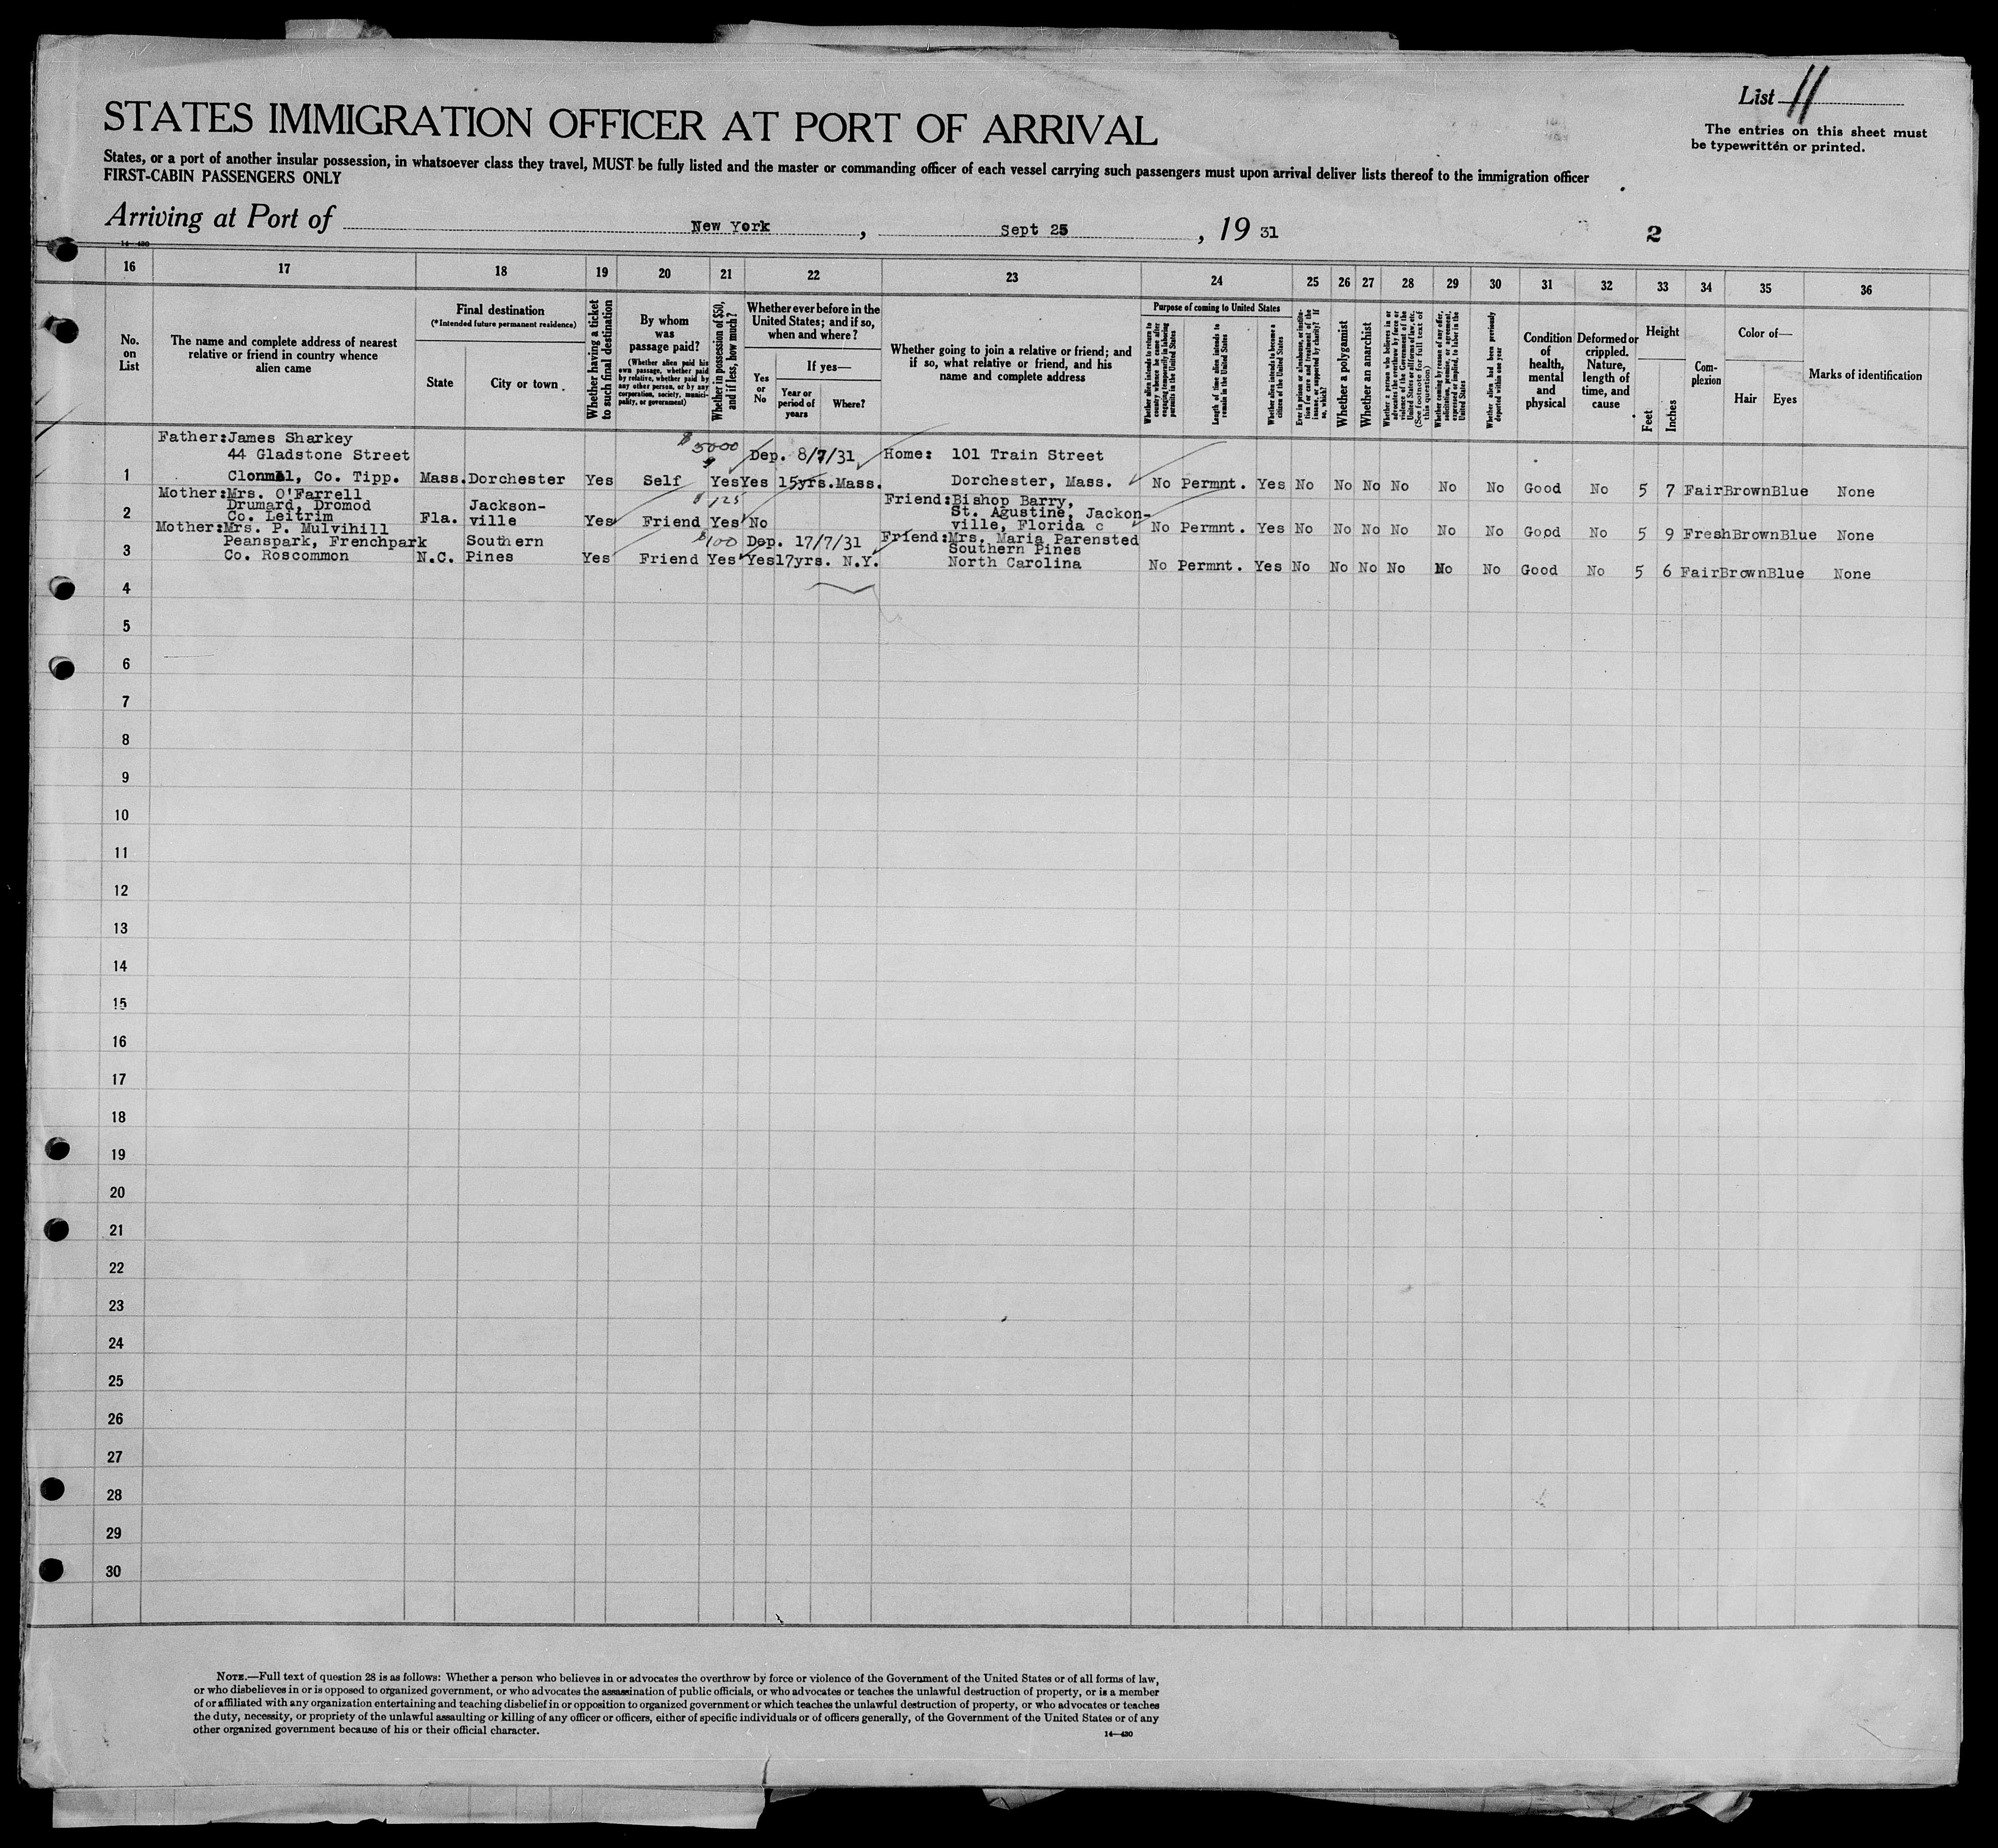 List 11
The entries on this sheet must
be typewritten or printed.
STATES IMMIGRATION OFFICER AT PORT OF ARRIVAL
States, or a port of another insular possession, in whatsoever class they travel, MUST be fully listed and the master or commanding officer of each vessel carrying such passengers must upon arrival deliver lists thereof to the immigration officer
FIRST-CABIN PASSENGERS ONLY
Arriving at Port of New York, Sept 25, 19 31
2
14—430
16 17 18 19 20 21 22 23 24 25 26 27 28 29 30 31 32 33 34 35 36
No.
on
List
The name and complete address of nearest
relative or friend in country whence
alien came
Final destination
(*Intended future permanent residence)
State
City or town
Whether having a ticket
to such final destination
By whom
was
passage paid?
(Whether alien paid his
own passage, whether paid
by relative, whether paid by
any other person, or by any
corporation, society, munici-
pality, or government)
Whether in possession of $50,
and if less, how much?
Whether ever before in the
United States; and if so,
when and where?
Yes
or
No
If yes—
Year or
period of
years
Where?
Whether going to join a relative or friend; and
if so, what relative or friend, and his
name and complete address
Purpose of coming to United States
Whether alien intends to return to
country whence he came after
engaging temporarily in laboring
pursuits in the United States
Length of time alien intends to
remain in the United States
Whether alien intends to become a
citizen of the United States
Ever in prison or almshouse, or institu-
tion for care and treatment of the
insane, or supported by charity? If
so, which?
Whether a polygamist
Whether an anarchist
Whether a person who believes in or
advocates the overthrow by force or
violence of the Government of the
United States or all forms of law, etc.
(See footnote for full text of
this question)
Whether coming by reason of any offer,
solicitation, promise, or agreement,
expressed or implied, to labor in the
United States
Whether alien had been previously
deported within one year
Condition
of
health,
mental
and
physical
Deformed or
crippled.
Nature,
length of
time, and
cause
Height
Feet
Inches
Com-
plexion
Color of—
Hair
Eyes
Marks of identification
Father:James Sharkey
44 Gladstone Street $5000 Dep. 8/7/31 Home: 101 Train Street
1 Clonmel, Co. Tipp. Mass. Dorchester Yes Self Yes Yes 15yrs. Mass. Dorchester, Mass. No Permnt. Yes No No No No No No Good No 5 7 Fair Brown Blue None
Mother:Mrs. O'Farrell $125 Friend:Bishop Barry,
Drumard, Dromod Jackson- St. Agustine, Jackon-
2 Co. Leitrim Fla. ville Yes Friend Yes No ville, Florida c No Permnt. Yes No No No No No No Good No 5 9 Fresh Brown Blue None
Mother:Mrs. P. Mulvihill $100 Dep. 17/7/31 Friend:Mrs. Maria Parensted
Peanspark, Frenchpark Southern Southern Pines
3 Co. Roscommon N.C. Pines Yes Friend Yes Yes 17yrs. N.Y. North Carolina No Permnt. Yes No No No No No No Good No 5 6 Fair Brown Blue None
4
5
6
7
8
9
10
11
12
13
14
15
16
17
18
19
20
21
22
23
24
25
26
27
28
29
30
NOTE.—Full text of question 28 is as follows: Whether a person who believes in or advocates the overthrow by force or violence of the Government of the United States or of all forms of law,
or who disbelieves in or is opposed to organized government, or who advocates the assassination of public officials, or who advocates or teaches the unlawful destruction of property, or is a member
of or affiliated with any organization entertaining and teaching disbelief in or opposition to organized government or which teaches the unlawful destruction of property, or who advocates or teaches
the duty, necessity, or propriety of the unlawful assaulting or killing of any officer or officers, either of specific individuals or of officers generally, of the Government of the United States or of any
other organized government because of his or their official character.
14—430